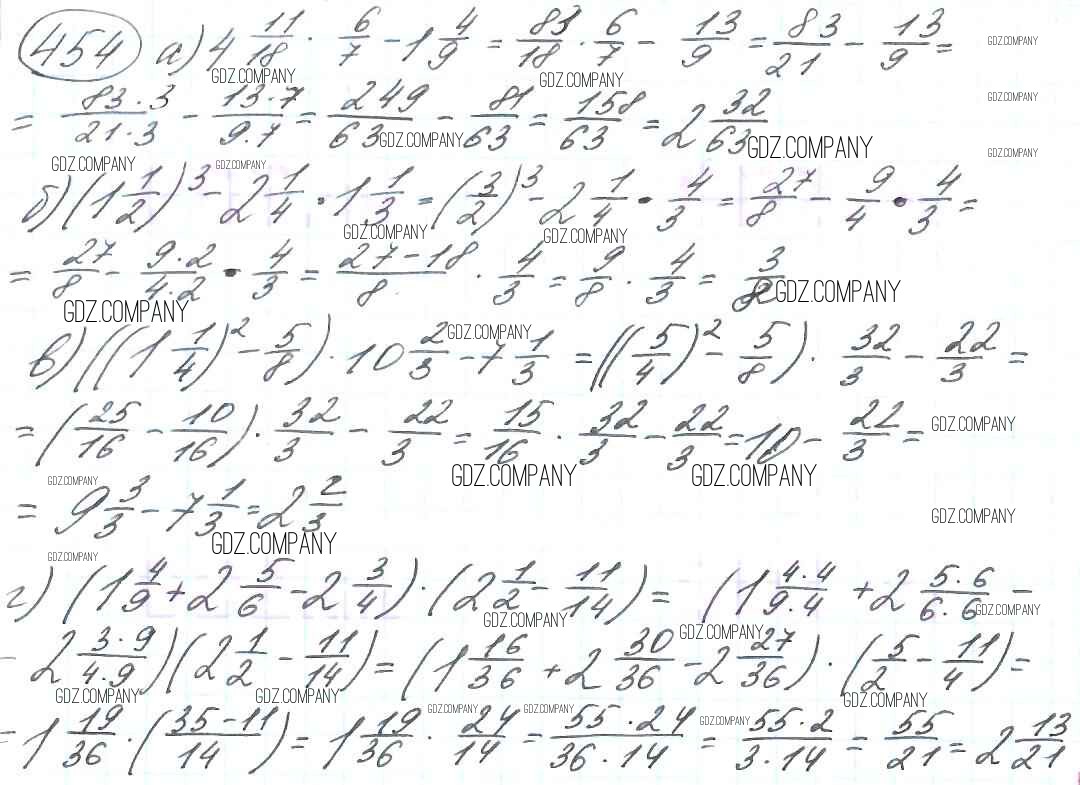 454 а) 4 11/18 · 6/7 - 1 4/9 = 83/18 · 6/7 - 13/9 = 83/21 - 13/9 = GDZ.COMPANY
GDZ.COMPANY GDZ.COMPANY
= 83·3/21·3 - 13·7/9·7 = 249/63 - 81/63 = 158/63 = 2 32/63 GDZ.COMPANY
GDZ.COMPANY GDZ.COMPANY
GDZ.COMPANY GDZ.COMPANY GDZ.COMPANY
б) (1 1/2)³ - 2 1/4 · 1 1/3 = (3/2)³ - 2 1/4 · 4/3 = 27/8 - 9/4 · 4/3 =
GDZ.COMPANY GDZ.COMPANY
= 27/8 - 9·2/4·2 · 4/3 = 27-18/8 · 4/3 = 9/8 · 4/3 = 3/2
GDZ.COMPANY GDZ.COMPANY
в) ((1 1/4)² - 5/8) · 10 2/3 - 7 1/3 = ((5/4)² - 5/8) · 32/3 - 22/3 =
GDZ.COMPANY
= (25/16 - 10/16) · 32/3 - 22/3 = 15/16 · 32/3 - 22/3 = 10 - 22/3 = GDZ.COMPANY
GDZ.COMPANY GDZ.COMPANY GDZ.COMPANY
= 9 3/3 - 7 1/3 = 2 2/3 GDZ.COMPANY
GDZ.COMPANY
GDZ.COMPANY
г) (1 4/9 + 2 5/6 - 2 3/4) · (2 1/2 - 11/14) = (1 4·4/9·4 + 2 5·6/6·6 -
GDZ.COMPANY GDZ.COMPANY
- 2 3·9/4·9)(2 1/2 - 11/14) = (1 16/36 + 2 30/36 - 2 27/36) · (5/2 - 11/4) =
GDZ.COMPANY GDZ.COMPANY GDZ.COMPANY GDZ.COMPANY
= 1 19/36 · (35-11/14) = 1 19/36 · 24/14 = 55·24/36·14 = 55·2/3·14 = 55/21 = 2 13/21
GDZ.COMPANY GDZ.COMPANY GDZ.COMPANY